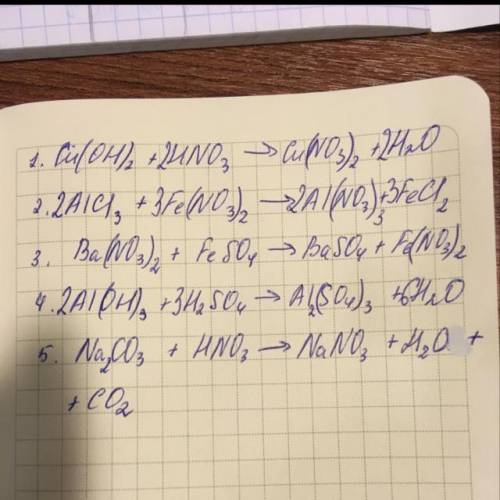 1. Cu(OH)₂ + 2HNO₃ → Cu(NO₃)₂ + 2H₂O
2. 2AlCl₃ + 3Fe(NO₃)₂ → 2Al(NO₃)₃ + 3FeCl₂
3. Ba(NO₃)₂ + FeSO₄ → BaSO₄ + Fe(NO₃)₂
4. 2Al(OH)₃ + 3H₂SO₄ → Al₂(SO₄)₃ + 6H₂O
5. Na₂CO₃ + HNO₃ → NaNO₃ + H₂O +
+ CO₂